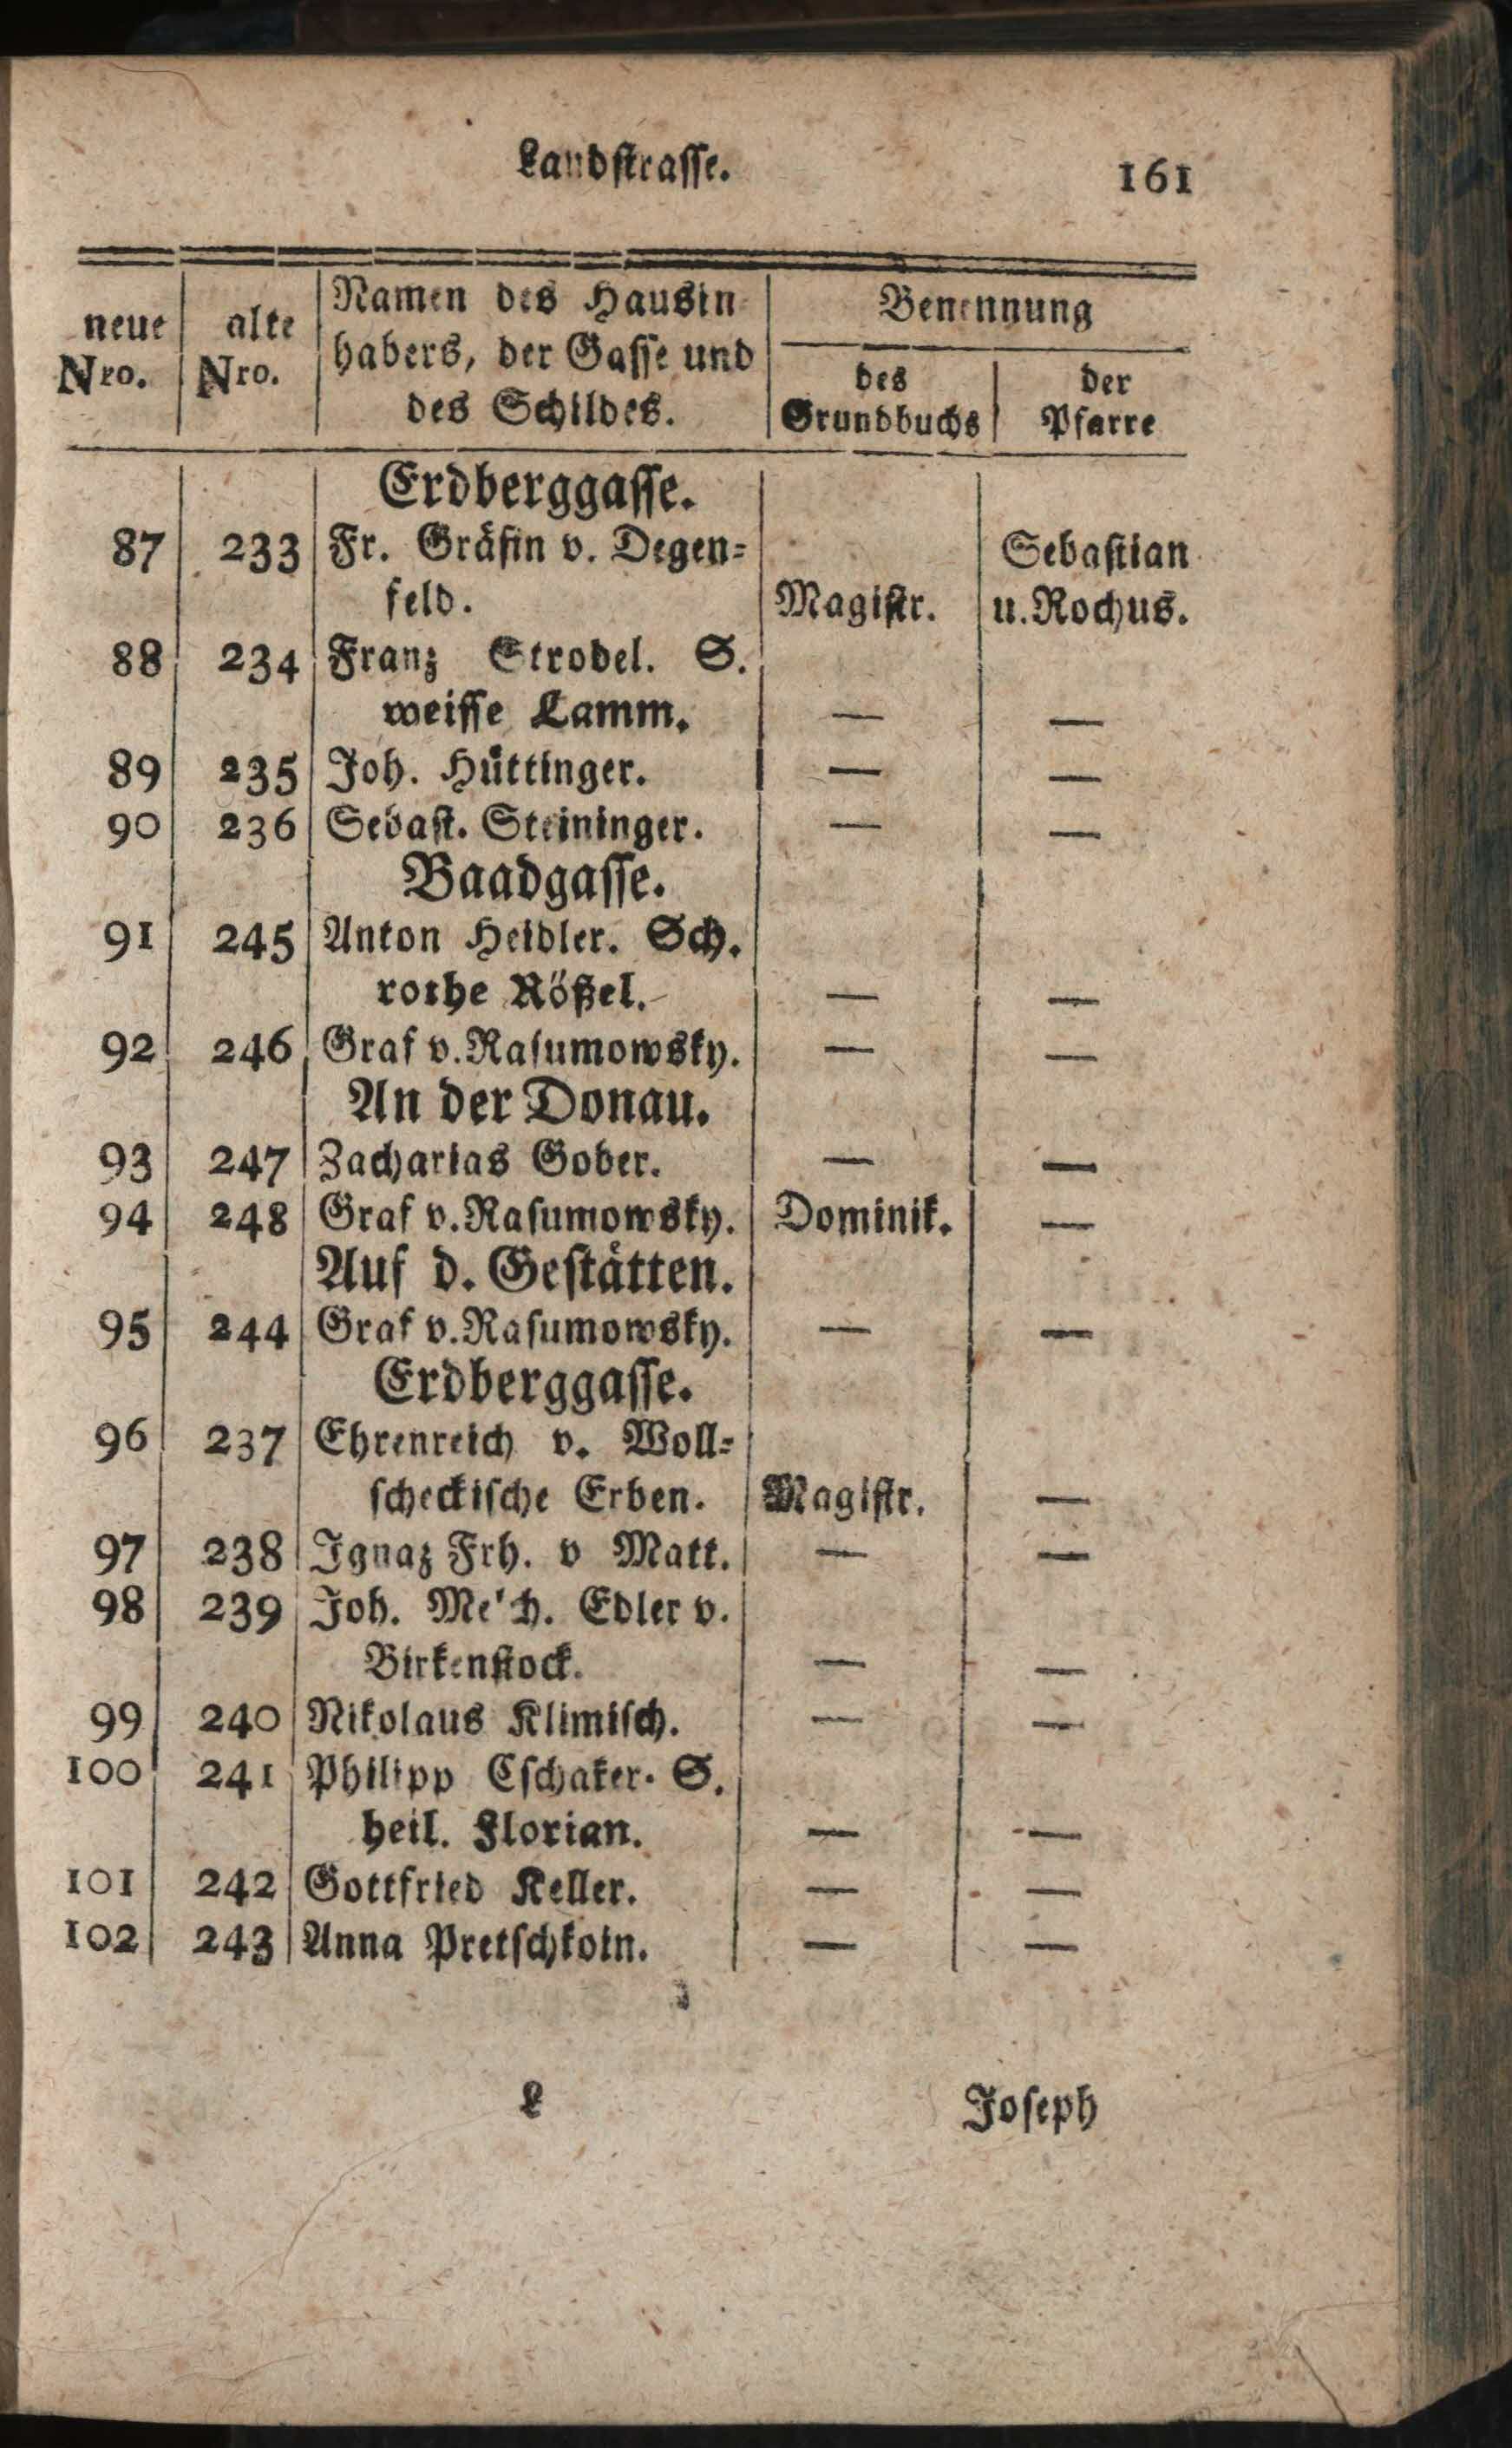 Landstrasse. 161
neue Nro. alte Nro. Namen des Hausin- Benennung
habers, der Gasse und des Grundbuchs der Pfarre
des Schildes.
Erdberggasse.
87 233 Fr. Gräfin v. Degen- Sebastian
feld. Magistr. u. Rochus.
88 234 Franz Strobel. S.
weisse Lamm. — —
89 235 Joh. Hüttinger. — —
90 236 Sebast. Steininger. — —
Baadgasse.
91 245 Anton Heidler. Sch.
rothe Rößel. — —
92 246 Graf v. Rasumowsky. — —
An der Donau.
93 247 Zacharias Gober. — —
94 248 Graf v. Rasumowsky. Dominik. —
Auf d. Gestätten.
95 244 Graf v. Rasumowsky. — —
Erdberggasse.
96 237 Ehrenreich v. Woll-
scheckische Erben. Magistr. —
97 238 Ignaz Frh. v Matt. — —
98 239 Joh. Edler v.
Birkenstock. — —
99 240 Nikolaus Klimisch. — —
100 241 Philipp Cschaker. S.
heil. Florian. — —
101 242 Gottfried Keller. — —
102 243 Anna Pretschkoin. — —
L Joseph